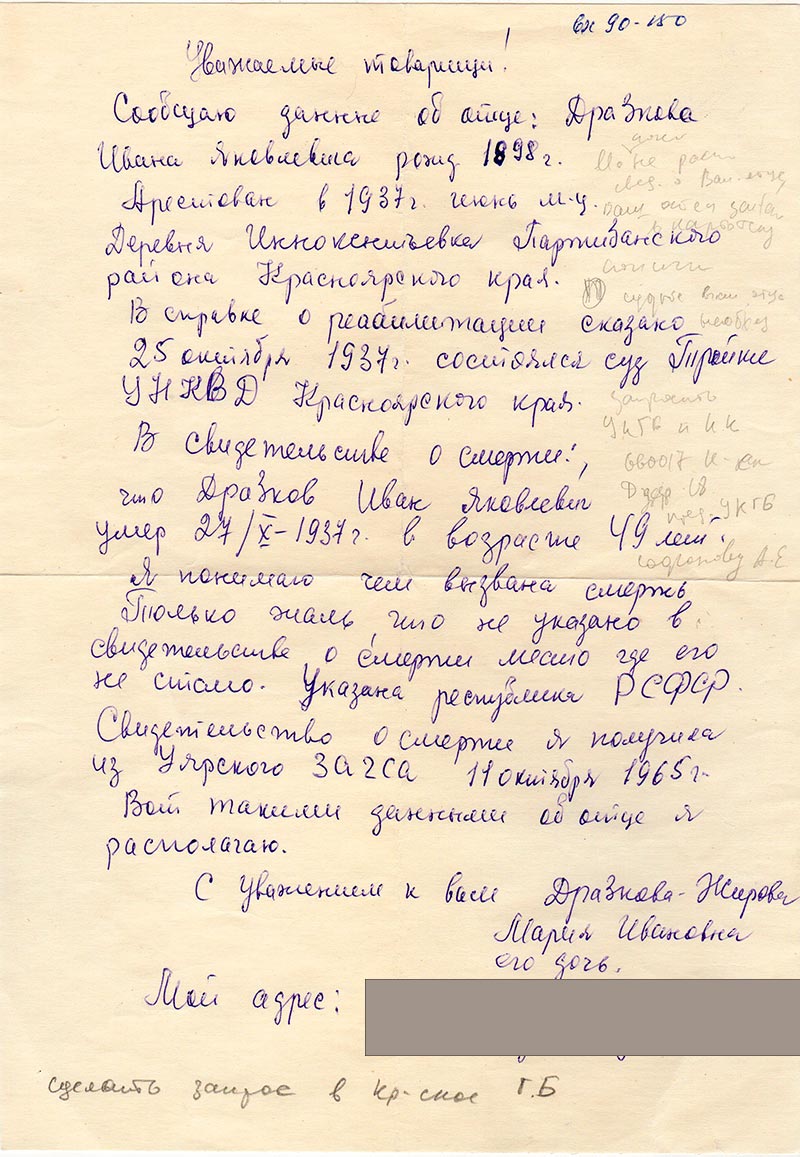 вх 90-150
Уважаемые товарищи!
Сообщаю данные об отце: Дразкова
Ивана Яковлевича рожд 1898 г.
Арестован в 1937 г. июнь м-ц.
Деревня Иннокентьевка Партизанского
района Красноярского края.
В справке о реабилитации сказано
25 октября 1937 г. состоялся суд Тройки
УНКВД Красноярского края.
В свидетельстве о смерти,
что Дразков Иван Яковлевич
умер 27/X-1937 г. в возрасте 49 лет.
Я понимаю чем вызвана смерть
Только жаль что не указано в
свидетельстве о смерти место где его
не стало. Указана республика РСФСР.
Свидетельство о смерти я получила
из Уярского ЗАГСА 11 октября 1965 г.
Вот такими данными об отце я
располагаю.
С уважением к вам Дразкова-Жирова
Мария Ивановна
его дочь.
Мой адрес:
сделать запрос в Кр-ское Г.Б
запросить
УКГБ и КК
660017
УКГБ